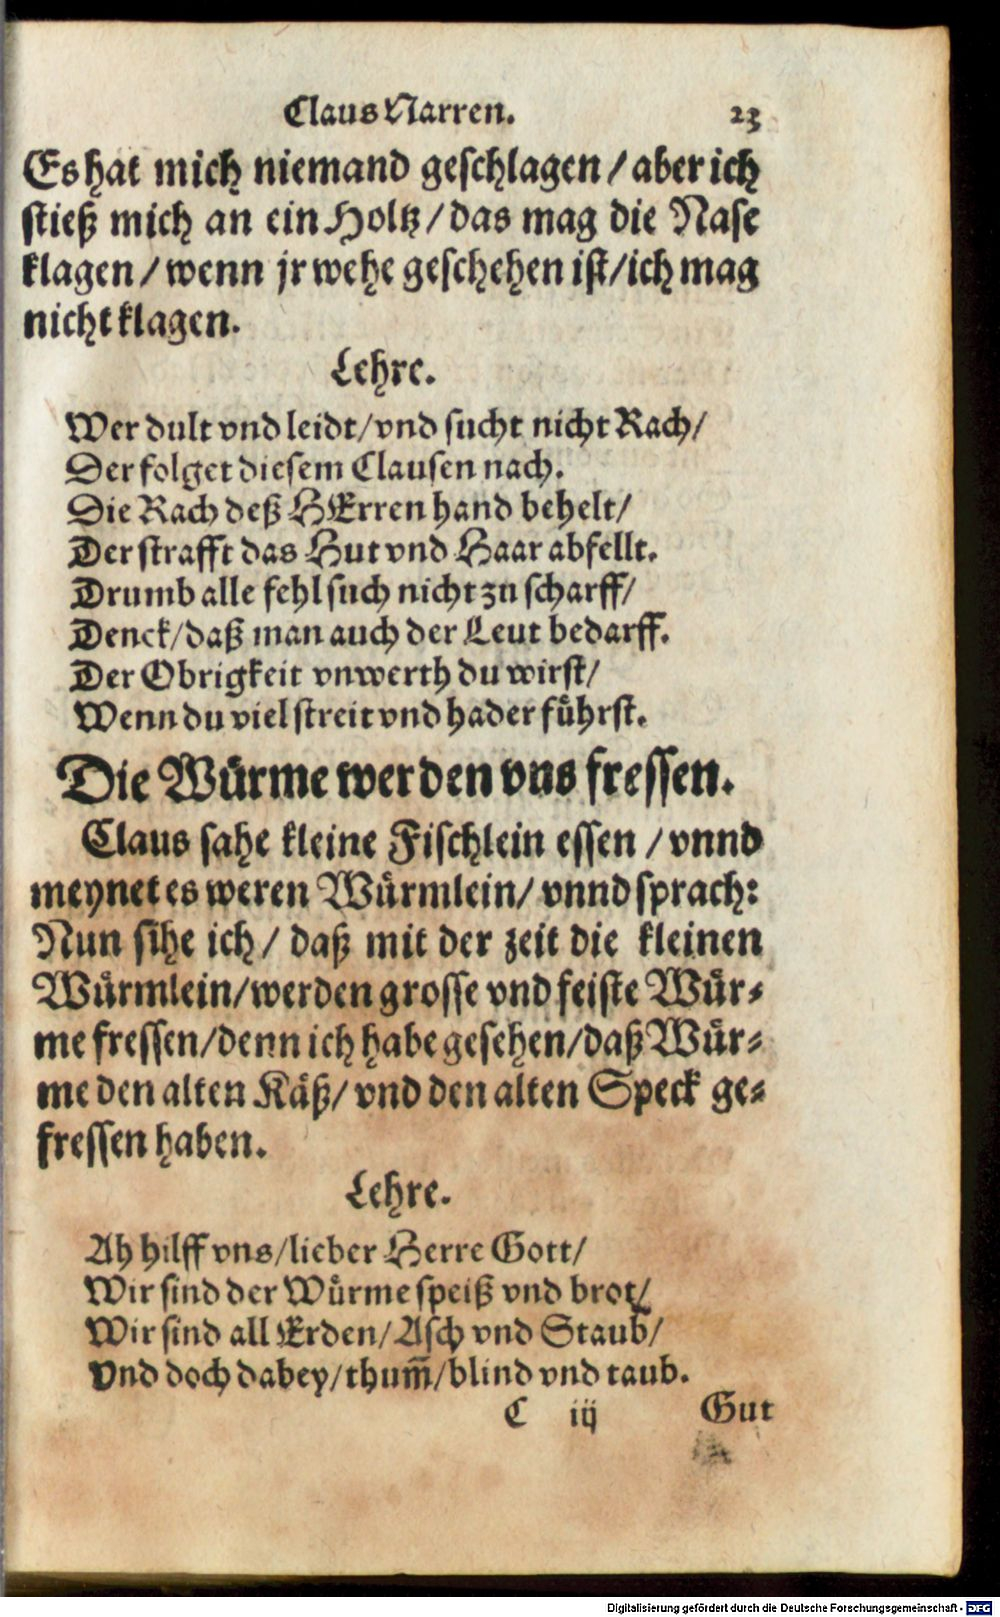 Claus Narren. 23
Es hat mich niemand geschlagen / aber ich
stieß mich an ein Holtz / das mag die Nase
klagen / wenn jr wehe geschehen ist / ich mag
nicht klagen.
Lehre.
Wer dult vnd leidt / vnd sucht nicht Rach /
Der folget diesem Clausen nach.
Die Rach deß HErren hand behelt /
Der strafft das Hut vnd Haar abfellt.
Drumb alle fehl such nicht zu scharff /
Denck / daß man auch der Leut bedarff.
Der Obrigkeit vnwerth du wirst /
Wenn du viel streit vnd hader fuͤhrst.
Die Wuͤrme werden vns fressen.
Claus sahe kleine Fischlein essen / vnnd
meynet es weren Wuͤrmlein / vnnd sprach:
Nun sihe ich / daß mit der zeit die kleinen
Wuͤrmlein / werden grosse vnd feiste Wuͤr-
me fressen / denn ich habe gesehen / daß Wuͤr-
me den alten Kaͤß / vnd den alten Speck ge-
fressen haben.
Lehre.
Ah hilff vns / lieber Herre Gott /
Wir sind der Wuͤrme speiß vnd brot /
Wir sind all Erden / Asch vnd Staub /
Vnd doch dabey / thum̃ / blind vnd taub.
C iij Gut
Digitalisierung gefördert durch die Deutsche Forschungsgemeinschaft - DFG